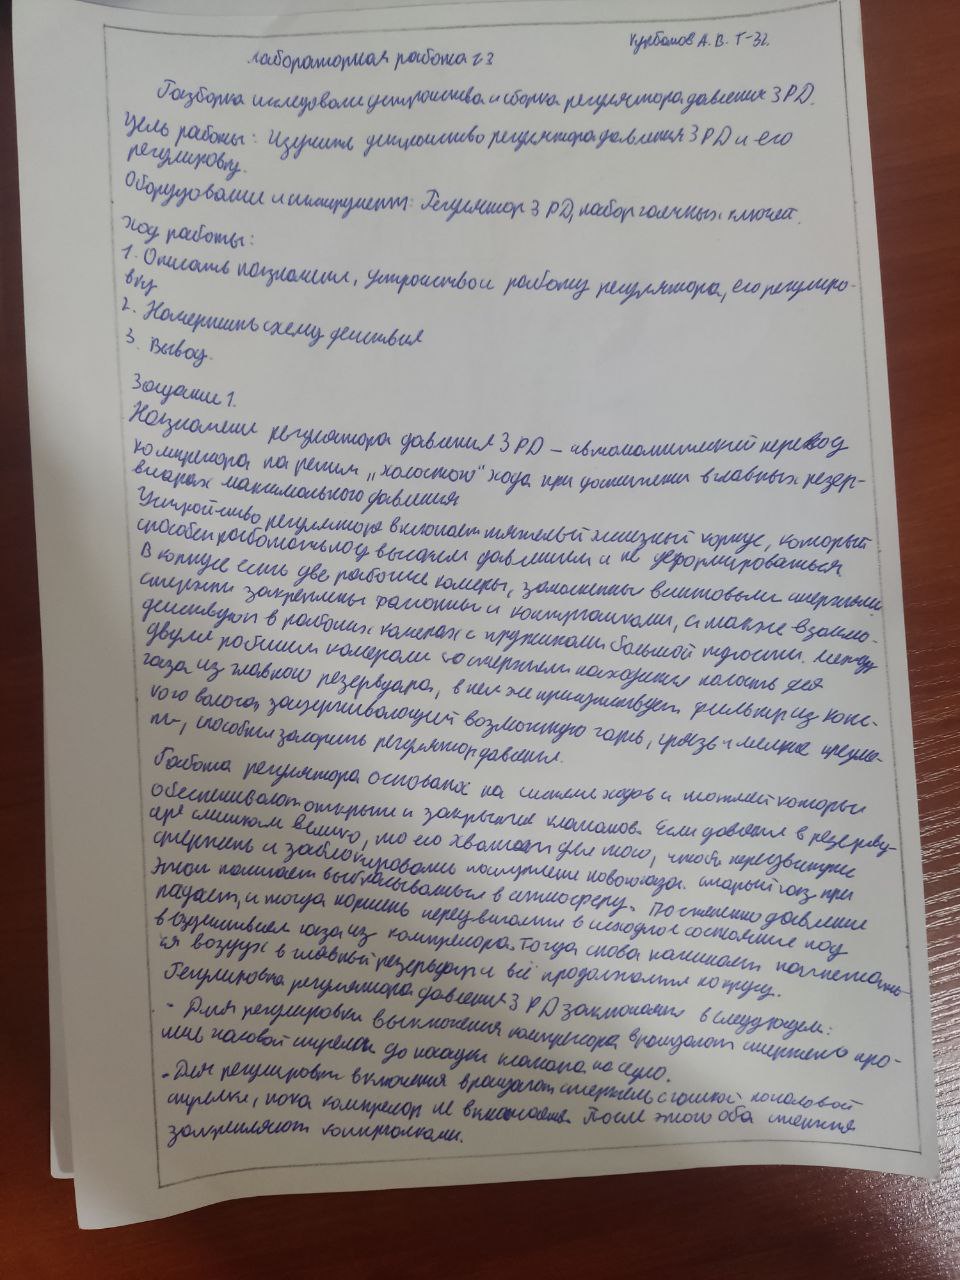 Курбанов А. В. Т-32.
Лабораторная работа №3
Разборка исследования устройства и сборка регулятора давления 3РД.
Цель работы: Изучить устройство регулятора давления 3РД и его
регулировку.
Оборудование и инструмент: Регулятор 3РД, набор гаечных ключей.
Ход работы:
1. Описать назначение, устройство и работу регулятора, его регулиро-
вку
2. Начертить схему действия
3. Вывод.
Задание 1.
Назначение регулятора давления 3РД – автоматический перевод
компрессора на режим „холостого" хода при достижении в главных резер-
вуарах максимального давления
Устройство регулятора включает тяжелый железный корпус, который
способен работать под высоким давлением и не деформироваться
В корпусе есть две рабочие камеры, заполненные винтовыми стержнями
стержни закреплены гайками и контргайками, а также взаимо-
действуют в рабочих камерах с пружинами большой жесткости. Между
двумя рабочими камерами со стержнями находится полость для
газа из главного резервуара, в ней же присутствует фильтр из конс-
кого волоса, задерживающий возможную гарь, грязь и мелкие предме-
ты, способные засорить регулятор давления.
Работа регулятора основана на системе ходов и тяжей которые
обеспечивают открытие и закрытие клапанов. Если давление в резерву-
аре слишком велико, то его хватает для того, чтобы передвинуть
стержень и заблокировать поступление нового газа. Старый газ при
этом начинает выбрасываться в атмосферу. Постепенно давление
падает, и тогда поршень передвигается в исходное состояние под
воздействием газа из компрессора. Тогда снова начинает нагнетать-
ся воздух в главный резервуар и всё продолжается по кругу.
Регулировка регулятора давления 3РД заключается в следующем:
- Для регулировки выключения компрессора вращают стержень про-
тив часовой стрелки до посадки клапана на седло.
- Для регулировки включения вращают стержень с гайкой по часовой
стрелке, пока компрессор не включается. После этого оба стержня
закрепляют контргайками.